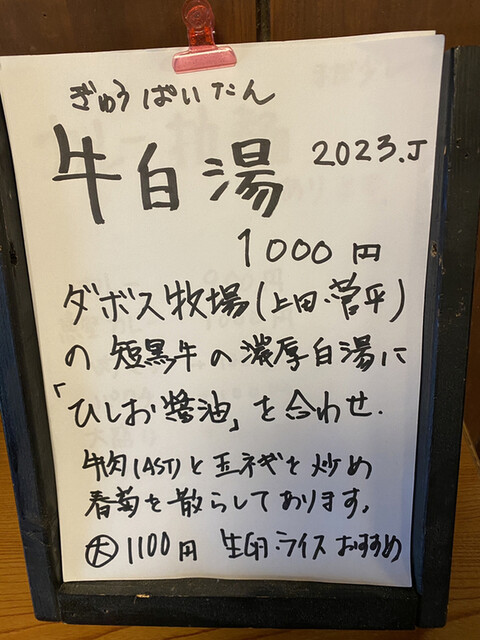 ぎゅうぱいたん
牛白湯 2023.J
1000円
ダボス牧場(上田・菅平)
の短黒牛の濃厚白湯に
「ひしお醤油」を合わせ.
牛肉(AST)と玉ネギを炒め
春菊を散らしております。
大 1100円 生卵・ライス おすすめ